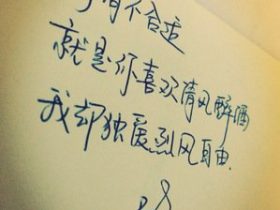 有不合适
就是你喜欢清风醉酒
我却独爱烈风自由.